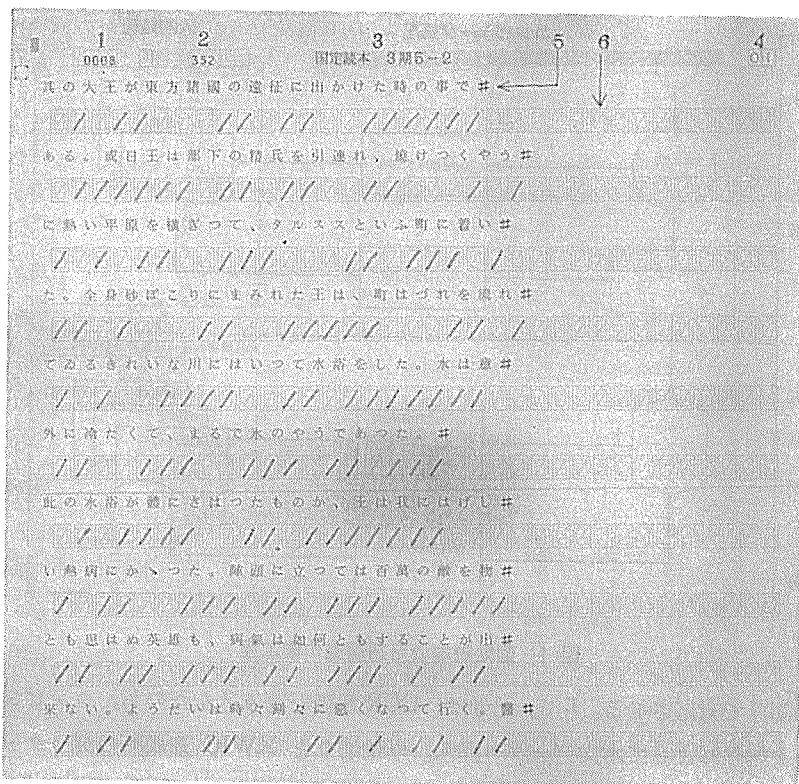 1 2 3 5 6 4
0008 352 国定読本 3期5-2 011
其の大王が東方諸國の遠征に出かけた時の事で#
ある。或日王は部下の精兵を引連れ、焼けつくやう#
に熱い平原を横ぎつて、タルススといふ町に着い#
た。全身砂ぼこりにまみれた王は、町はづれを流れ#
てゐるきれいな川にはいつて水浴をした。水は意#
外に冷たくて、まるで氷のやうであつた。#
此の水浴が體にさはつたものか、王は俄にはげし#
い熱病にかゝつた。陣頭に立つては百萬の敵を物#
とも思はぬ英雄も、病氣は如何ともすることが出#
來ない。ようだいは時々刻々に惡くなつて行く。醫#